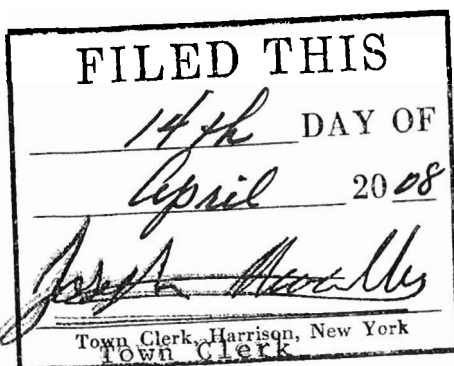 FILED THIS
14th DAY OF
April 20 08
Joseph
Town Clerk, Harrison, New York
Town Clerk